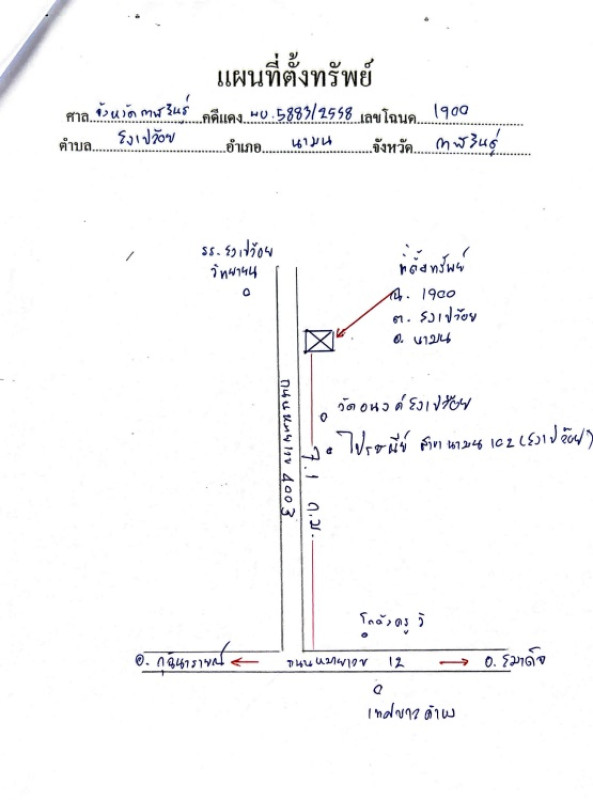 แผนที่ตั้งทรัพย์
ศาล จังหวัดกาฬสินธุ์ คดีแดง ผบ.5883/2558 เลขโฉนด 1900
ตำบล สงเปลือย อำเภอ นามน จังหวัด กาฬสินธุ์
รร. สงเปลือย
วิทยายน
ที่ตั้งทรัพย์
ฉ. 1900
ต. สงเปลือย
อ. นามน
วัดอนงค์สงเปลือย
ไปรษณีย์ สาขา นามน 102 (สงเปลือย)
ถนนหมายเลข 4003
7.1 ก.ม.
โกดังครู วิ
อ. กุฉินารายณ์ ถนนหมายเลข 12 อ. สมเด็จ